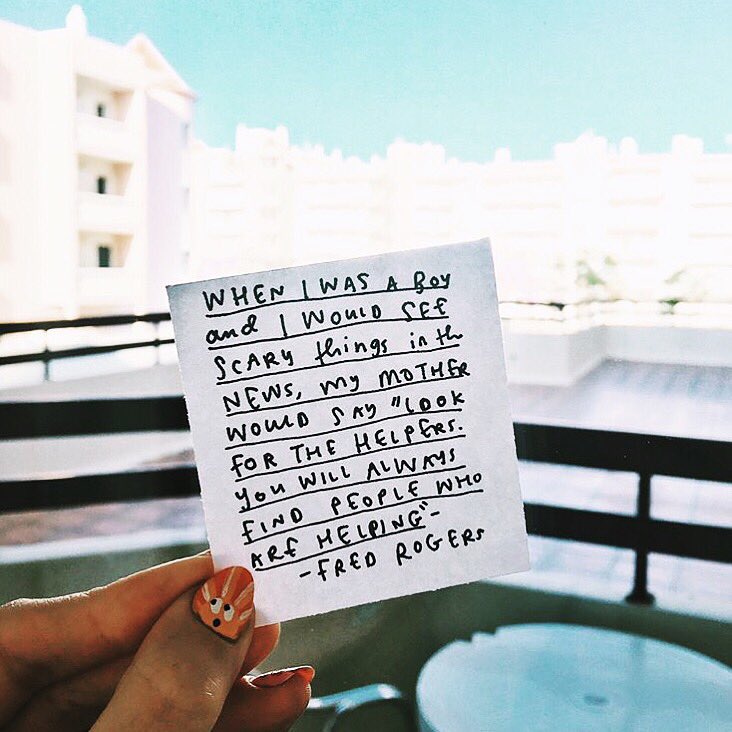 WHEN I WAS A BOY
and I WOULD SEE
SCARY things in the
NEWS, my MOTHER
WOULD SAY "LOOK
FOR THE HELPERS.
YOU WILL ALWAYS
FIND PEOPLE WHO
ARE HELPING"-
-FRED ROGERS